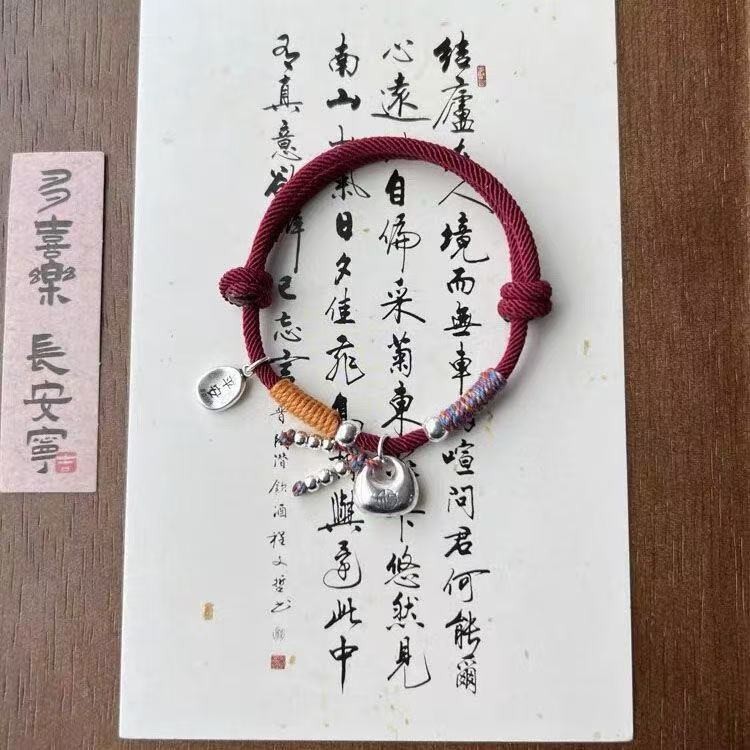 结廬在人境而無車喧問君何能爾
心遠自偏采菊東下悠然見
南山山氣日夕佳飛鳥與還此中
有真意欲辨已忘言
晉陶潛飲酒程文哲书
平安
多喜樂 長安寧
吉